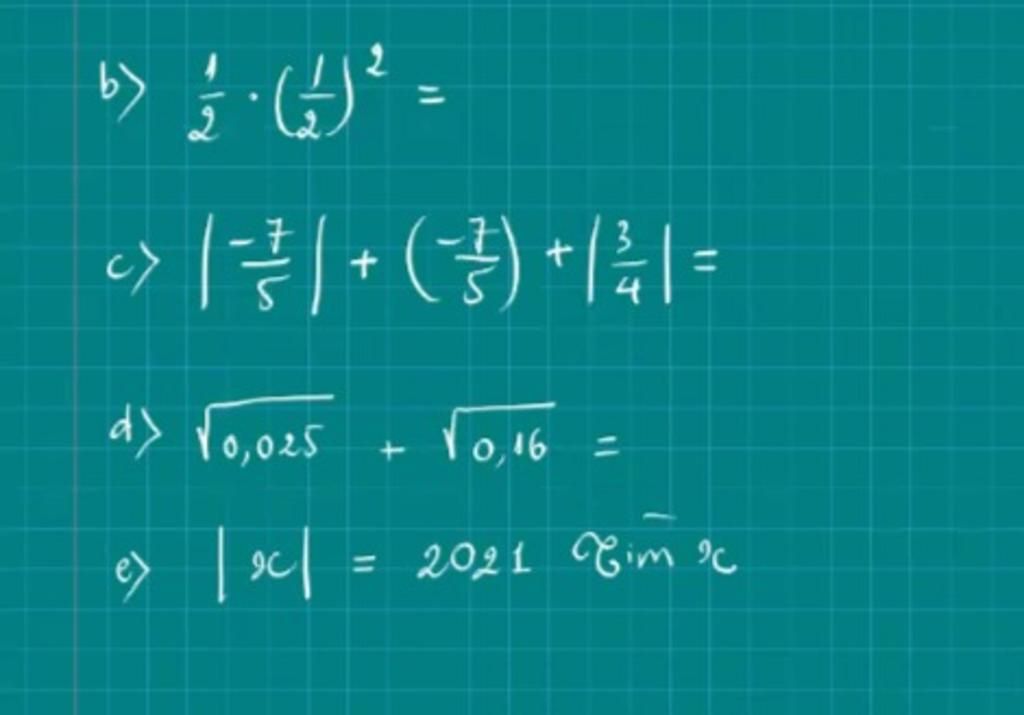 b) 1/2 · (1/2)² =
c) |-7/5| + (-7/5) + |3/4| =
d) √0,025 + √0,16 =
e) |x| = 2021 Tim x